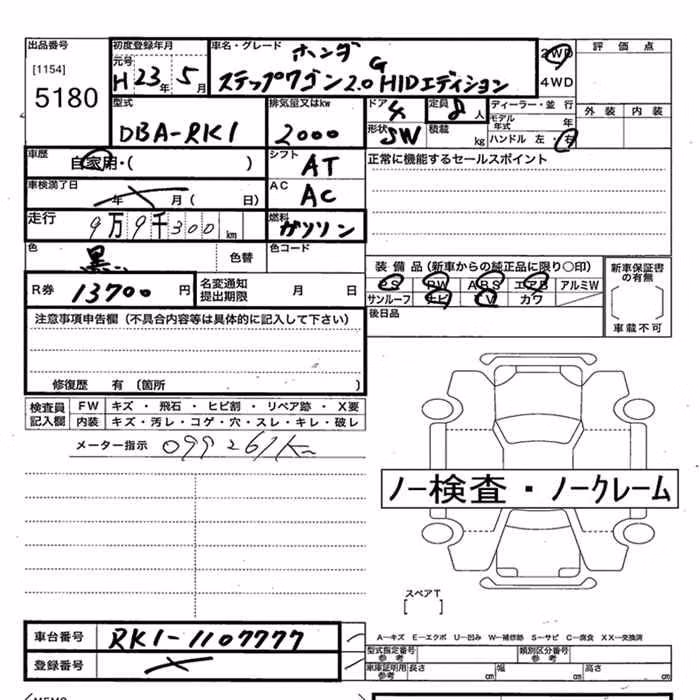 出品番号
[1154]
5180
初度登録年月
元号
H 23年 5月
車名・グレード
ホンダ G
ステップワゴン2.0 HIDエディション
2WD
4WD
評価点
外装 内装
型式
DBA-RK1
排気量又はkw
2000
ドア 4
形状 SW
定員 8人
積載 kg
ディーラー・並 行
モデル年式 年
ハンドル 左・右
車歴
自家用・( )
シフト
AT
正常に機能するセールスポイント
車検満了日
年 月( 日)
AC
AC
走行
9万9千300km
燃料
ガソリン
色
黒
色替
色コード
R券
13700円
名変通知
提出期限
月 日
装備品(新車からの純正品に限り○印)
PS PW ABS エアB アルミW
サンルーフ ナビ TV カワ
後日品
新車保証書の有無
車載不可
注意事項申告欄(不具合内容等は具体的に記入して下さい)
修復歴 有 〔箇所 〕
検査員記入欄
FW キズ・飛石・ヒビ割・リペア跡・X要
内装 キズ・汚レ・コゲ・穴・スレ・キレ・破レ
メーター指示 099261Km
ノー検査・ノークレーム
スペアT
[ ]
車台番号 RK1-1107777
登録番号
A－キズ E－エクボ U－凹み W－補修跡 S－サビ C－腐食 XX－交換済
型式指定番号
参考
類別区分番号
参考
車庫証明用
参考
長さ cm 幅 cm 高さ cm
MEMO